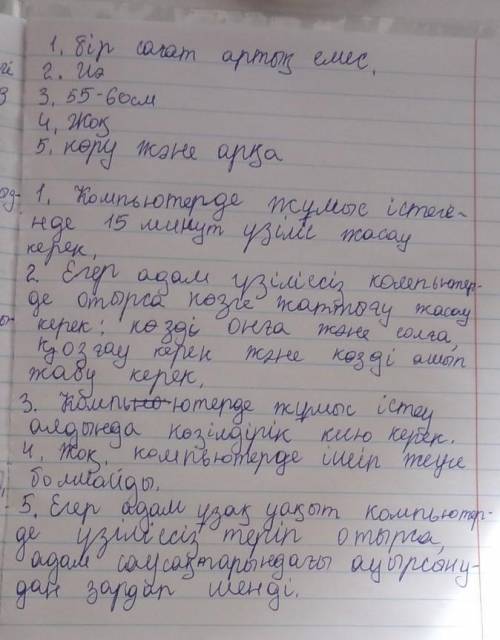 1. бір сағат артық емес.
2. Иә
3. 55-60см
4. Жоқ
5. көру және арқа
1. Компьютерде жұмыс істеге-
нде 15 минут үзіліс жасау
керек.
2. Егер адам үзіліссіз компьютер-
де отырса көзге жаттығу жасау
керек: көзді оңға және солға,
қозғау керек және көзді ашып
жабу керек.
3. Компьютерде жұмыс істеу
алдында көзілдірік кию керек.
4. Жоқ, компьютерде ішіп жеуге
болмайды.
5. Егер адам ұзақ уақыт компьютер-
де үзіліссіз теріп отырса,
адам саусақтарындағы ауырсыну-
дан зардап шенді.